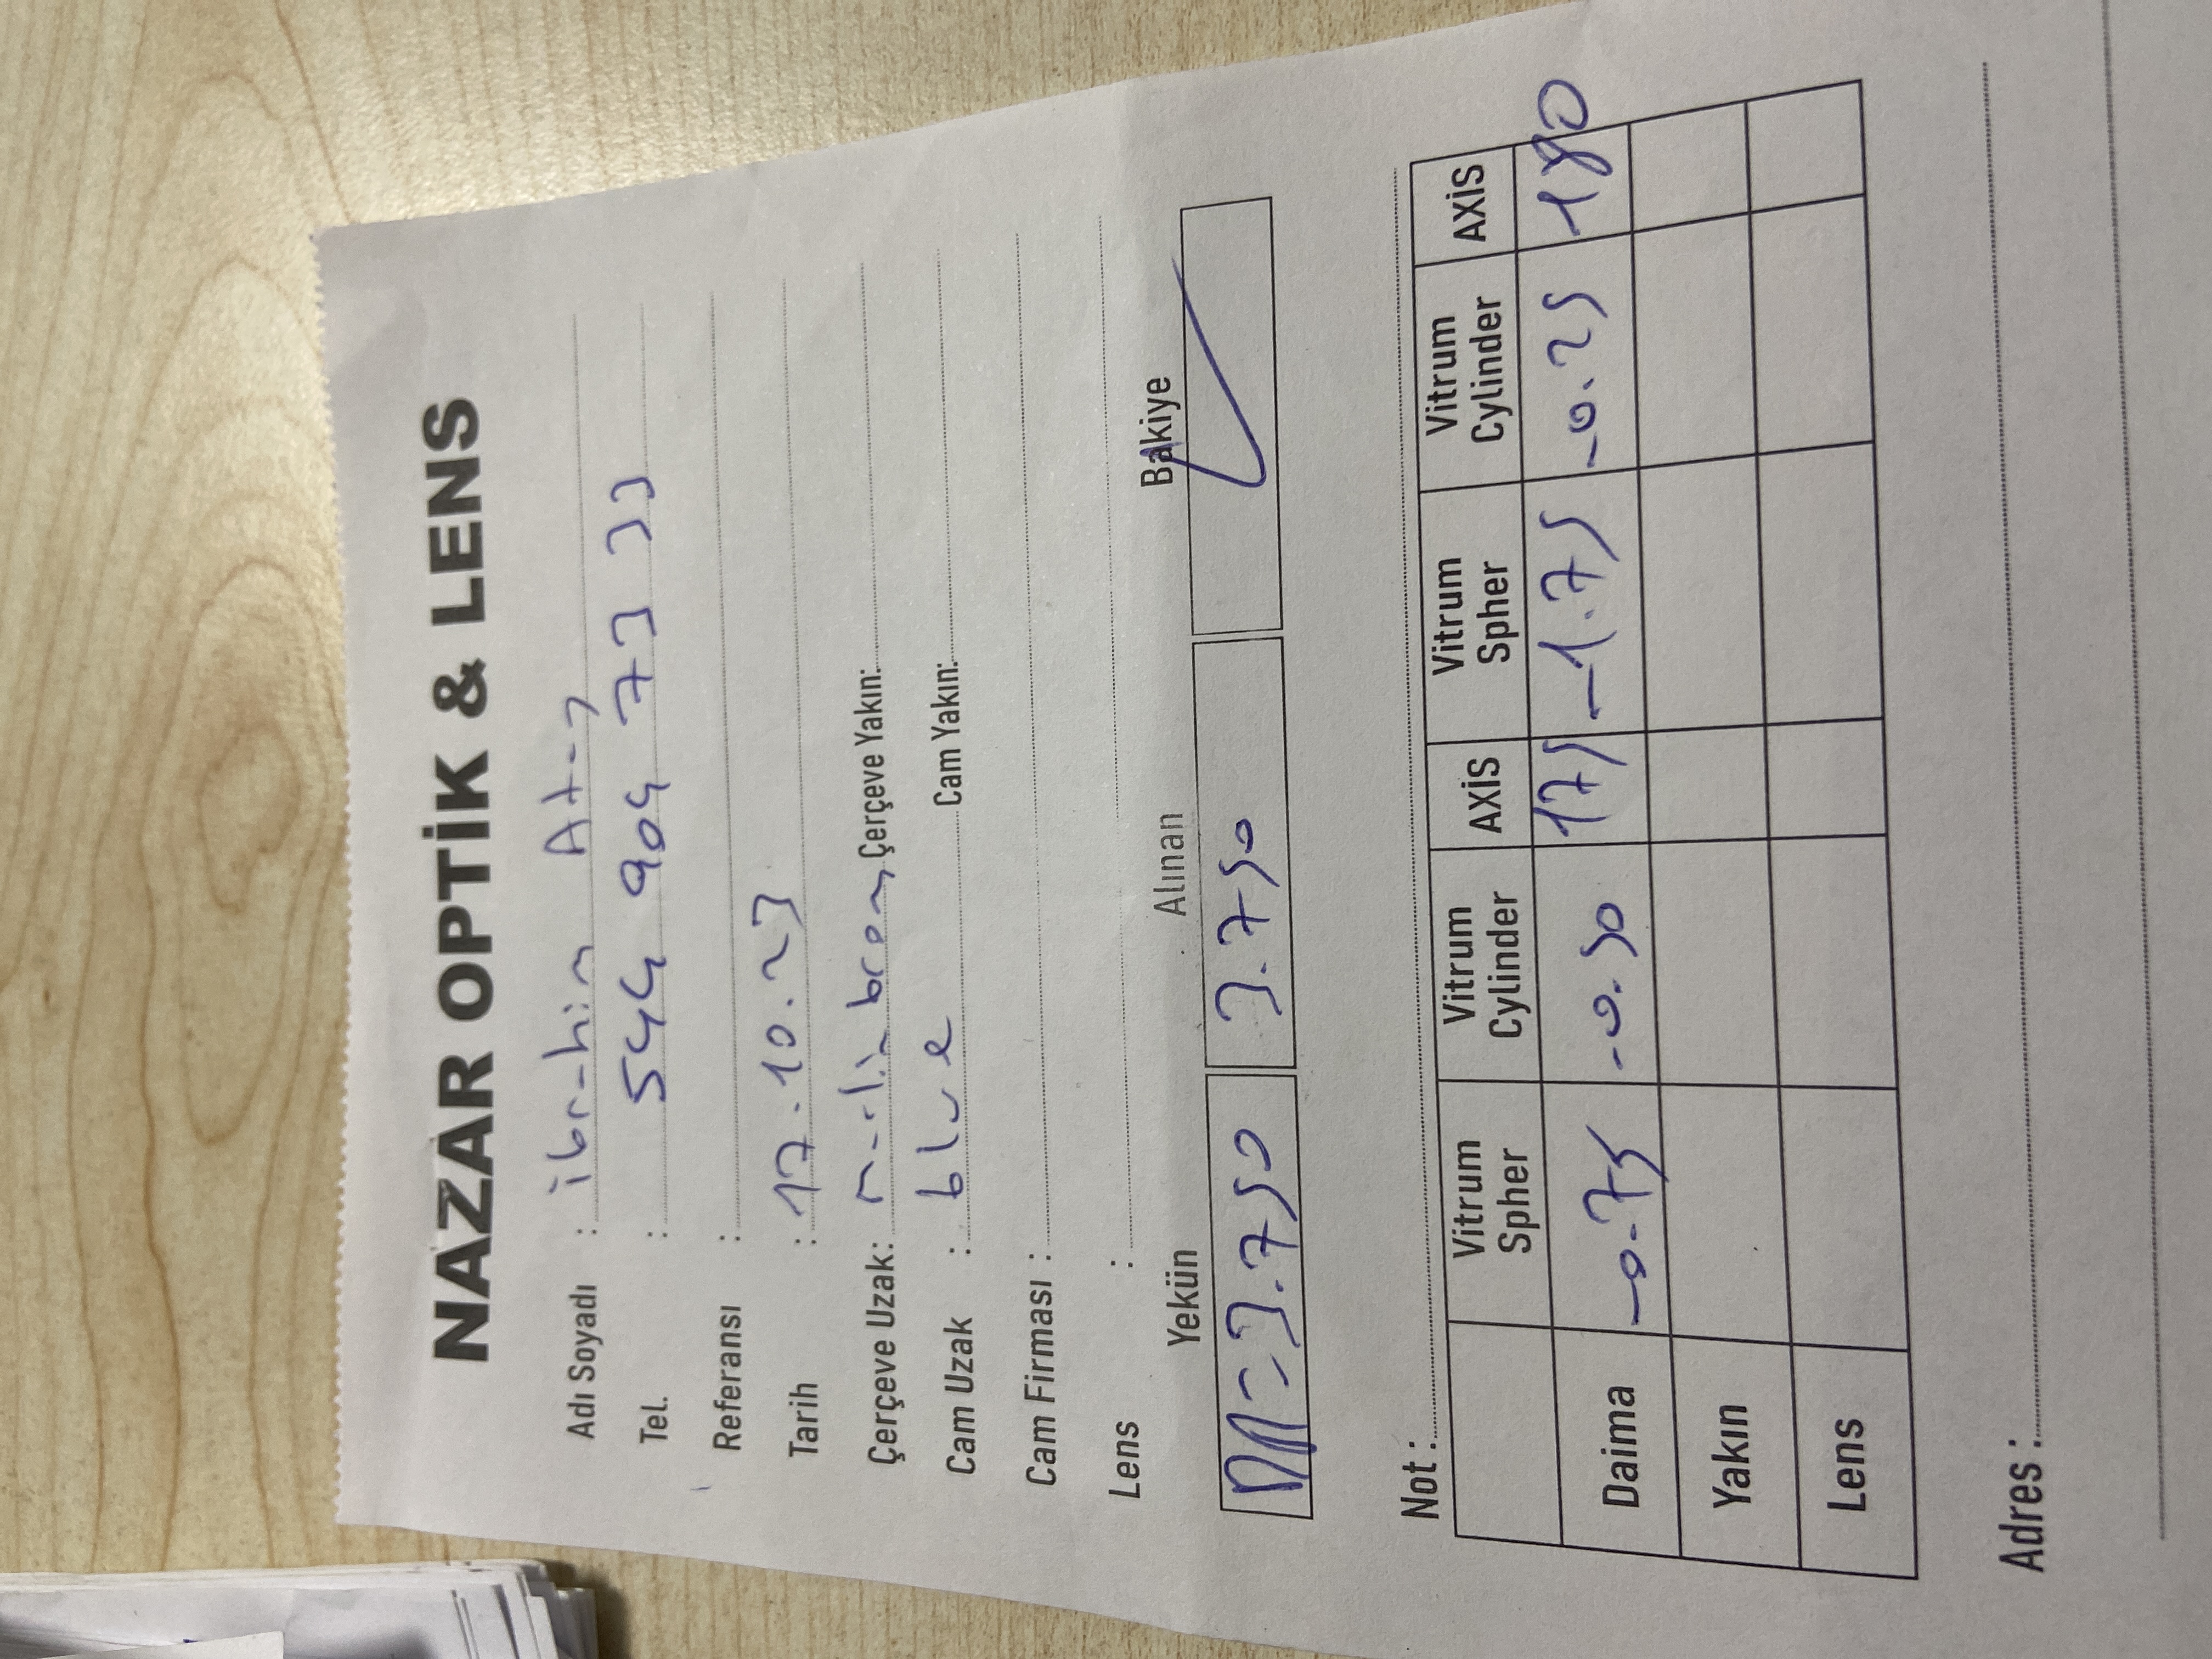 NAZAR OPTİK & LENS
Adı Soyadı : ibrahim
Tel. : 544 904 73 33
Referansı :
Tarih : 17.10.23
Çerçeve Uzak: Çerçeve Yakın:
Cam Uzak : blue Cam Yakın:
Cam Firması :
Lens :
Yekün Alınan Bakiye
= 3.750 3.750
Not :
Vitrum Spher Vitrum Cylinder AXİS Vitrum Spher Vitrum Cylinder AXİS
Daima -0.75 -0.50 175 -1.75 -0.25 180
Yakın
Lens
Adres :